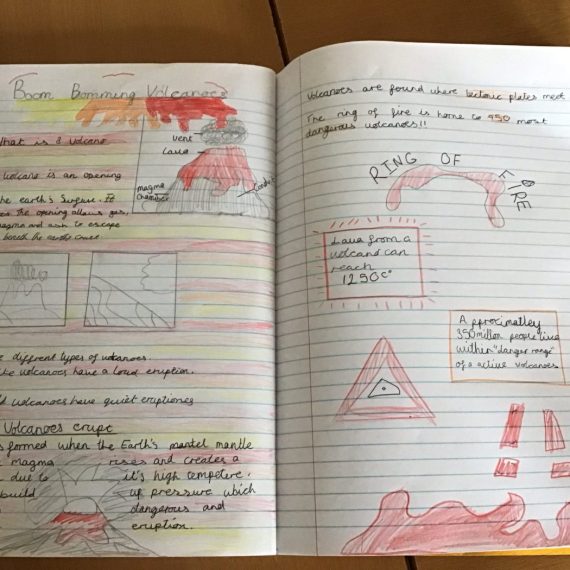 Boom Bomming Volcanoes
What is a volcano
Vent
Lava
magma chamber
Conduit
volcano is an opening
the earth's surface. It
the opening allows gas,
magma and ash to escape
beneath the earths
diffrent types of volcanoes.
volcanoes have a loud eruption.
volcanoes have quiet eruptiones
Volcanoes erupt
formed when the Earth's mantel mantle
magma rises and creates a
due to it's high tempetere.
build up pressure which
dangerous and
eruption.
Volcanoes are found where tectonic plates meet
The ring of fire is home to 450 most
dangerous volcanoes!!
RING OF FIRE
Lava from a
volcano can
reach
1250c°
Approximatley
350 million people live
within "danger range"
of a active volcanoes